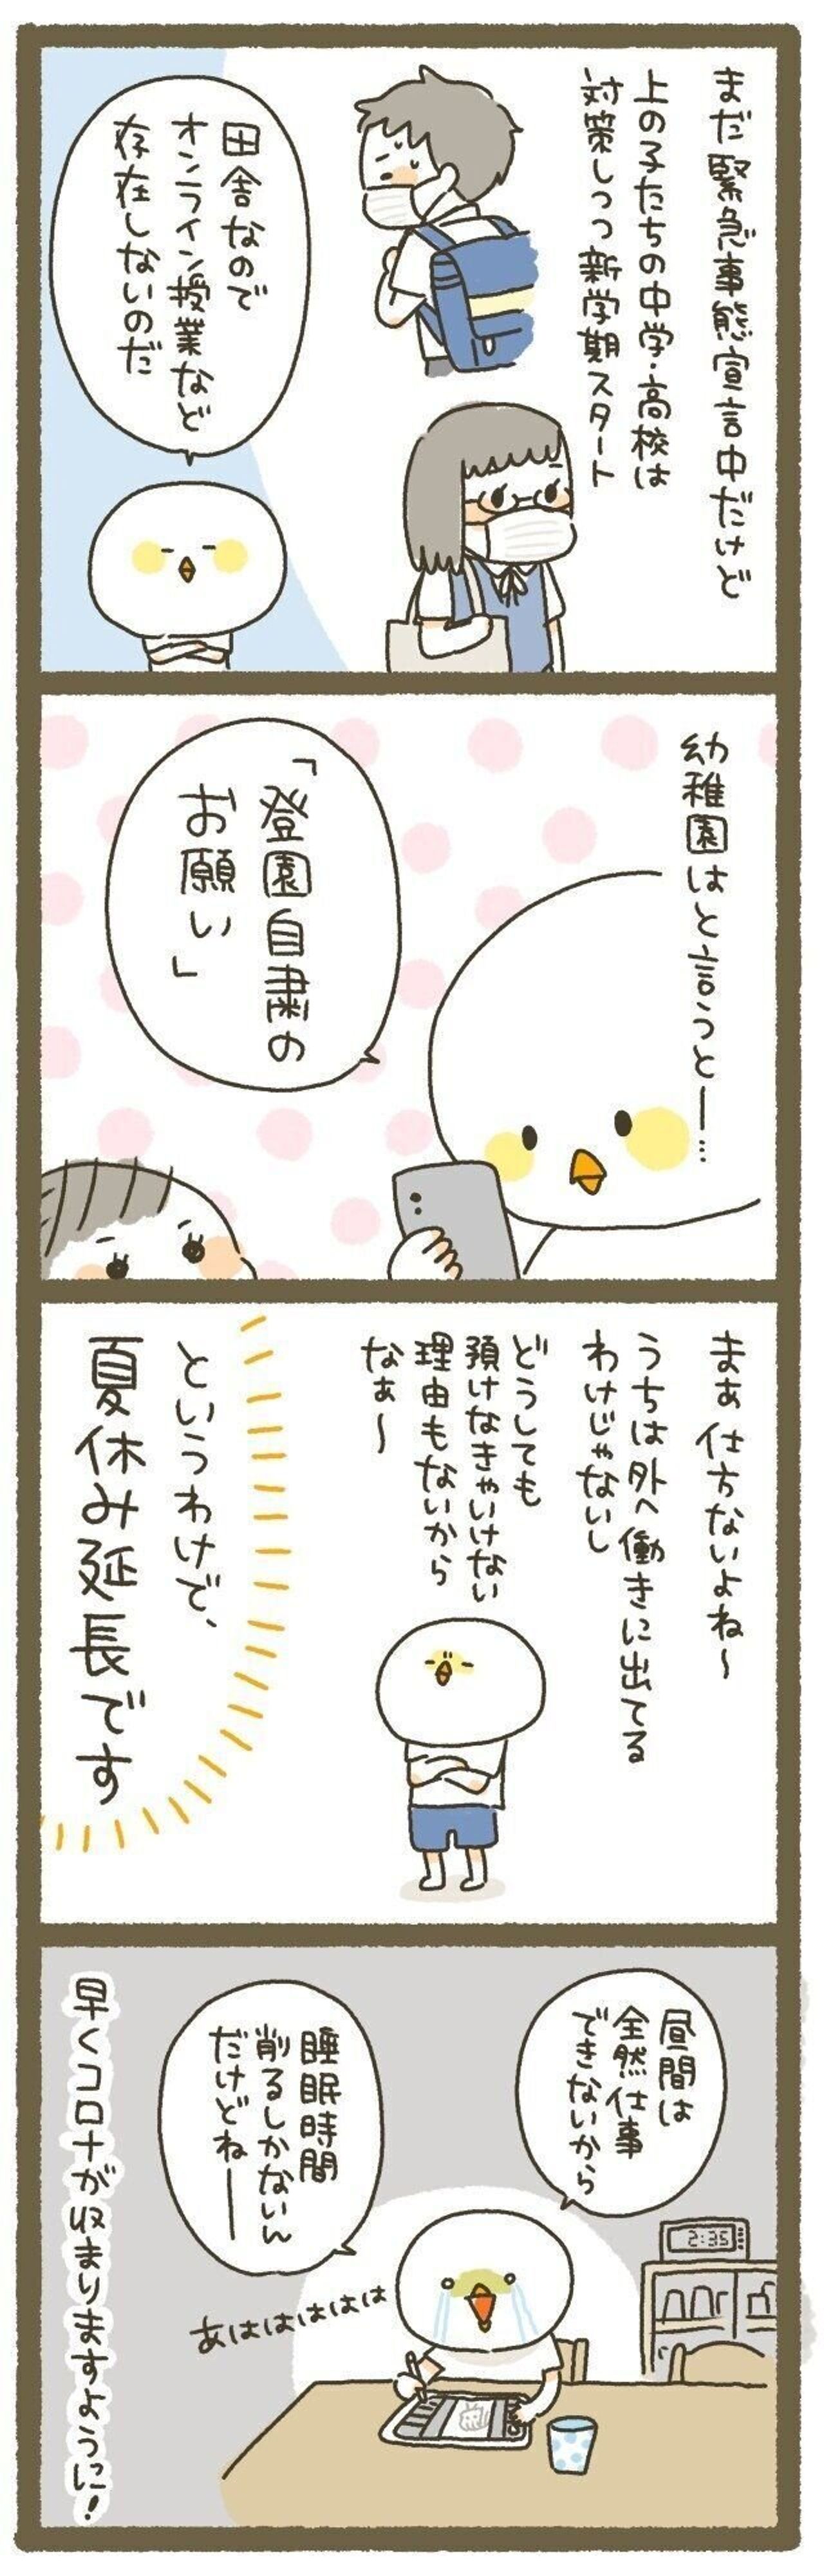 まだ緊急事態宣言中だけど
上の子たちの中学・高校は
対策しつつ新学期スタート
田舎なので
オンライン授業など
存在しないのだ
幼稚園はと言うと——…
「登園自粛の
お願い」
まぁ仕方ないよね〜
うちは外へ働きに出てる
わけじゃないし
どうしても
預けなきゃいけない
理由もないから
なぁ〜
というわけで、
夏休み延長です
昼間は
全然仕事
できないから
睡眠時間
削るしかないん
だけどね——
あはははははは
2:35
早くコロナが収まりますように!